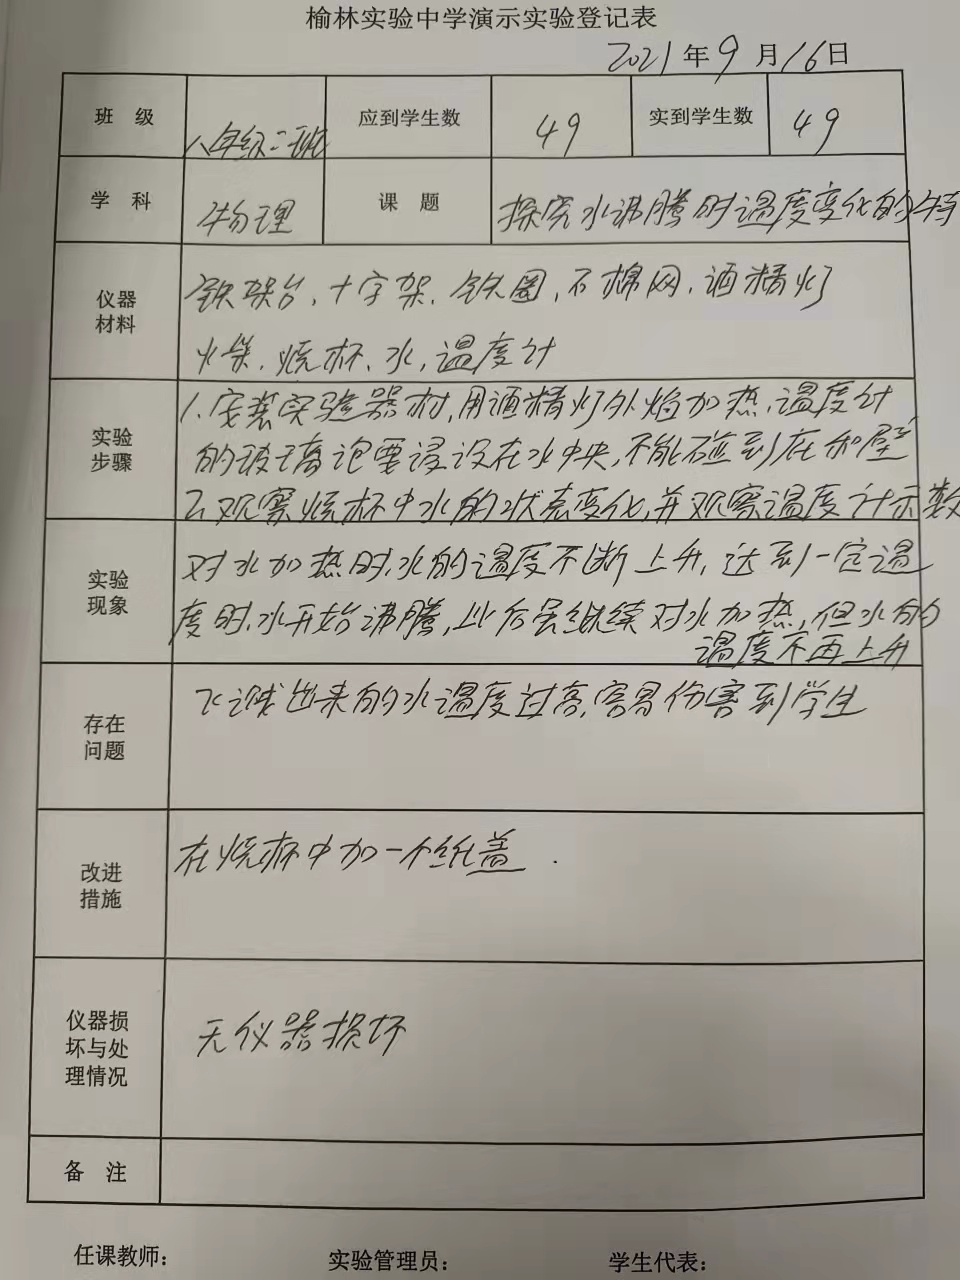 榆林实验中学演示实验登记表
2021年9月16日
班 级 八年级二班 应到学生数 49 实到学生数 49
学 科 物理 课 题 探究水沸腾时温度变化的特
仪器材料
铁架台、十字架、铁圈、石棉网、酒精灯
火柴、烧杯、水、温度计
实验步骤
1、安装实验器材,用酒精灯外焰加热、温度计
的玻璃泡要浸没在水中央,不能碰到底和壁
2、观察烧杯中水的状态变化,并观察温度计示数
实验现象
对水加热时,水的温度不断上升,达到一定温
度时,水开始沸腾,此后虽继续对水加热,但水的
温度不再上升
存在问题
飞溅出来的水温度过高,容易伤害到学生
改进措施
在烧杯中加一个纸盖.
仪器损坏与处理情况
无仪器损坏
备 注
任课教师: 实验管理员: 学生代表: